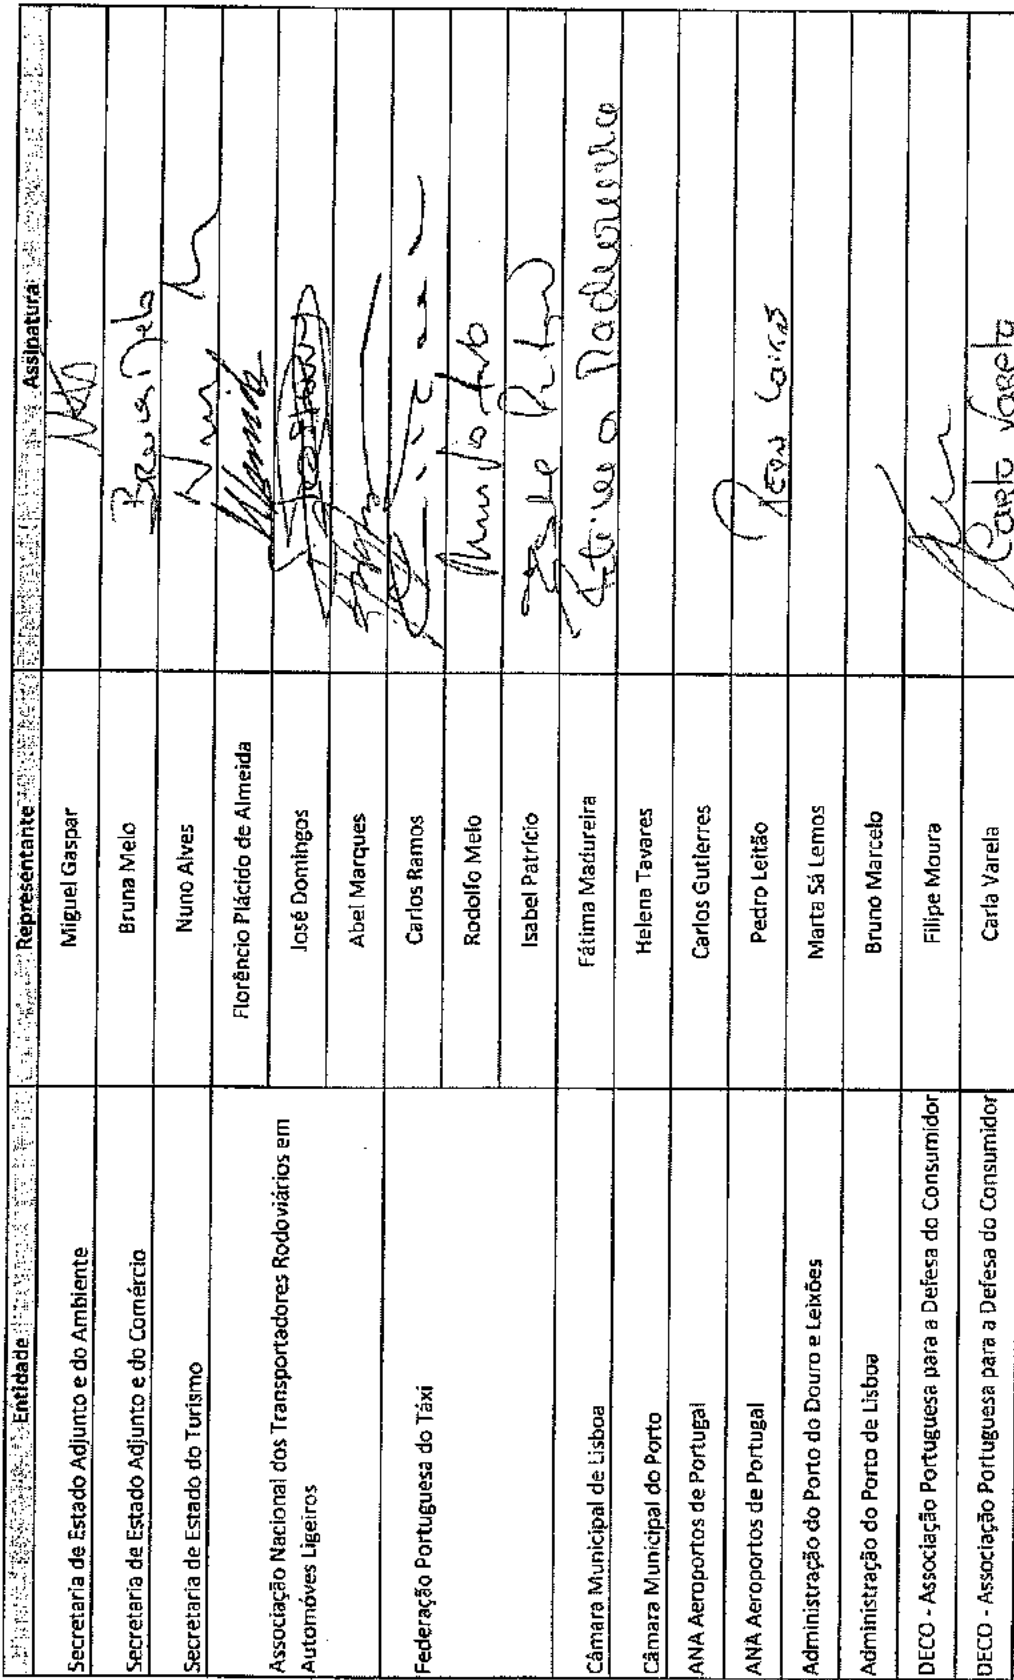 Entidade Representante Assinatura
Secretaria de Estado Adjunto e do Ambiente Miguel Gaspar
Secretaria de Estado Adjunto e do Comércio Bruna Melo Bruna Melo
Secretaria de Estado do Turismo Nuno Alves
Associação Nacional dos Transportadores Rodoviários em
Automóves Ligeiros
Florêncio Plácido de Almeida
José Domingos
Abel Marques
Federação Portuguesa do Táxi
Carlos Ramos
Rodolfo Melo
Isabel Patrício
Câmara Municipal de Lisboa Fátima Madureira
Câmara Municipal do Porto Helena Tavares
ANA Aeroportos de Portugal Carlos Gutierres
ANA Aeroportos de Portugal Pedro Leitão
Administração do Porto do Douro e Leixões Marta Sá Lemos
Administração do Porto de Lisboa Bruno Marcelo
DECO - Associação Portuguesa para a Defesa do Consumidor Filipe Moura
DECO - Associação Portuguesa para a Defesa do Consumidor Carla Varela Carla Varela